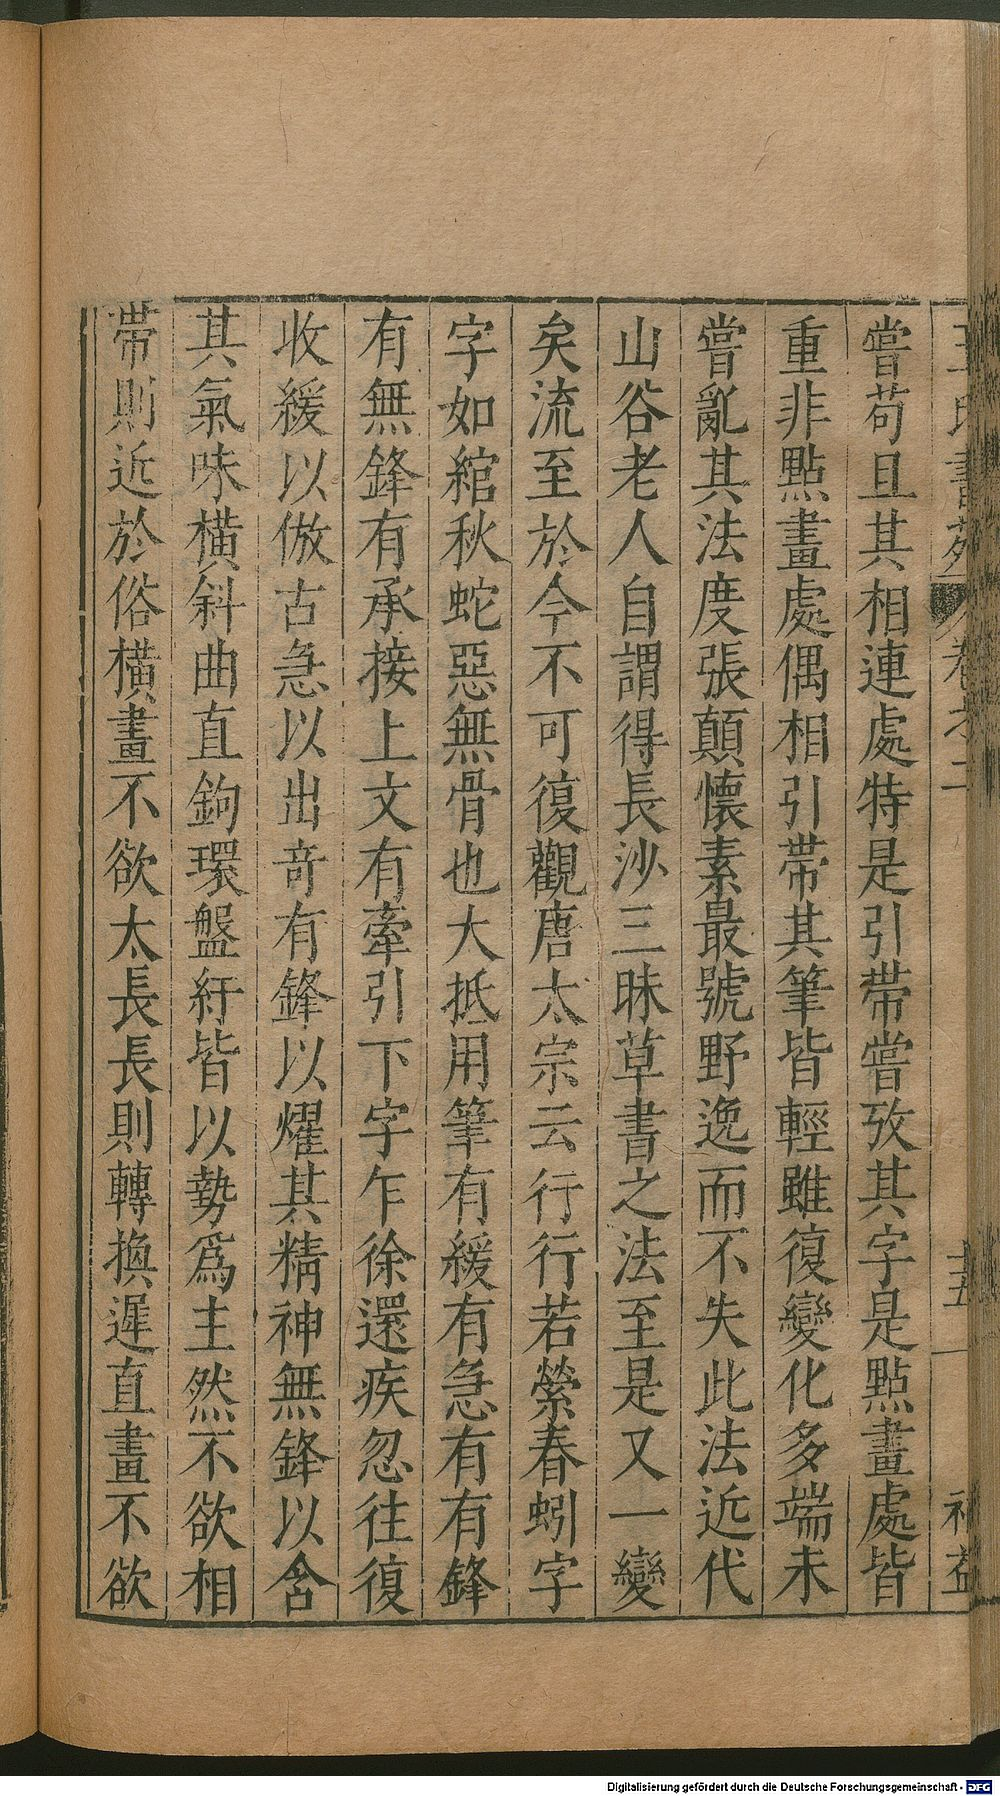 王氏書苑 卷之二 十五
嘗苟且其相連處特是引帶嘗攷其字是點畫處皆
重非點畫處偶相引帶其筆皆輕雖復變化多端未
嘗亂其法度張顛懷素最號野逸而不失此法近代
山谷老人自謂得長沙三昧草書之法至是又一變
矣流至於今不可復觀唐太宗云行行若縈春蚓字
字如綰秋蛇惡無骨也大抵用筆有緩有急有有鋒
有無鋒有承接上文有牽引下字乍徐還疾忽往復
收緩以倣古急以出奇有鋒以燿其精神無鋒以含
其氣味橫斜曲直鉤環盤紆皆以勢爲主然不欲相
帶則近於俗橫畫不欲太長長則轉換遲直畫不欲
Digitalisierung gefördert durch die Deutsche Forschungsgemeinschaft - DFG